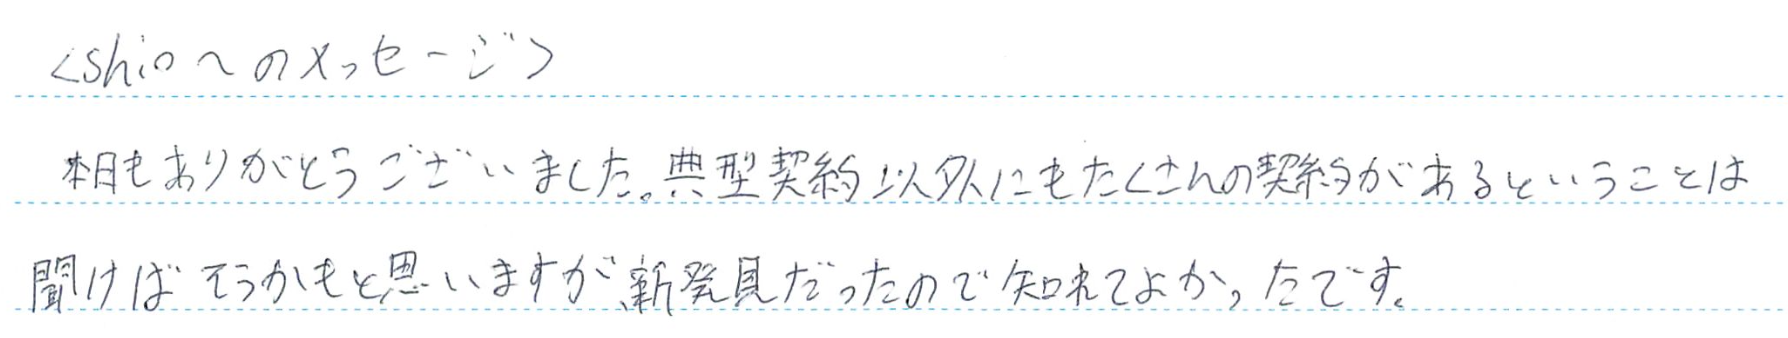 <shioへのメッセージ>
本日もありがとうございました。典型契約以外にもたくさんの契約があるということは
聞けばそうかもと思いますが、新発見だったので知れてよかったです。